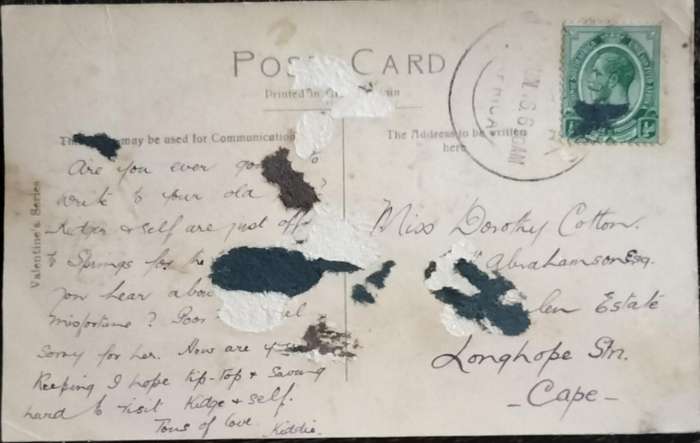 POST CARD
Printed in
may be used for Communication
The Address to be written
here
Valentine's Series
Are you ever to
write to your old ?
Kidge & self are just off
to Springs for
you hear
misfortune? Poor
Sorry for her. How are
Keeping I hope tip-top & Saving
hard to visit Kidge & self.
Tons of love Kiddie
Miss Dorothy Cotton.
Abrahamson Esq.
Estate
Longhope Stn.
-Cape-